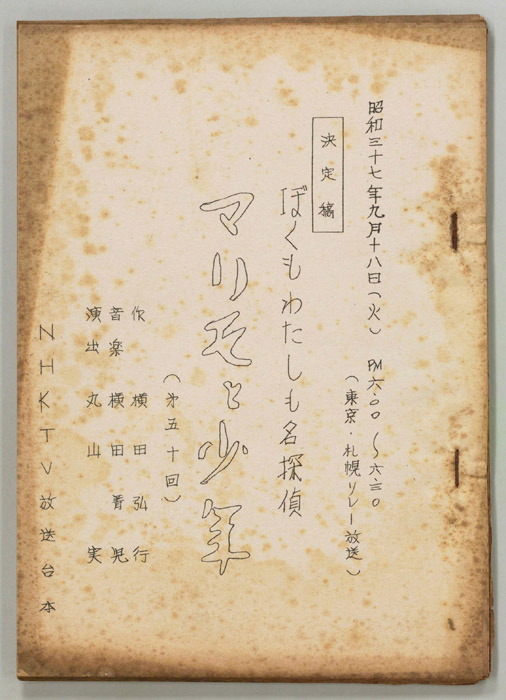 昭和三十七年九月十八日(火) PM六・〇〇〜六・三〇
(東京・札幌リレー放送)
決定稿
ぼくもわたしも名探偵
マリモと少年
(第五十回)
作 横田弘行
音楽 横田青児
演出 丸山 実
NHKTV放送台本